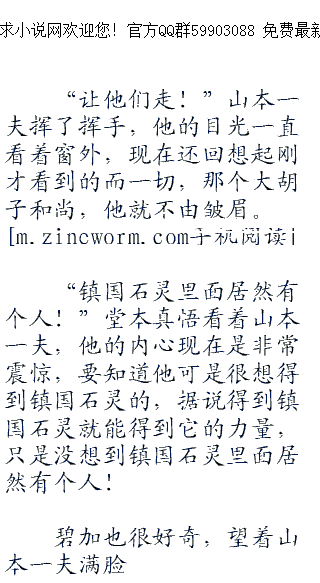 求小说网欢迎您！官方QQ群59903088 免费最新
“让他们走！”山本一
夫挥了挥手，他的目光一直
看着窗外，现在还回想起刚
才看到的而一切，那个大胡
子和尚，他就不由皱眉。
[m.zincworm.com手机阅读i
“镇国石灵里面居然有
个人！”堂本真悟看着山本
一夫，他的内心现在是非常
震惊，要知道他可是很想得
到镇国石灵的，据说得到镇
国石灵就能得到它的力量，
只是没想到镇国石灵里面居
然有个人！
碧加也很好奇，望着山
本一夫满脸